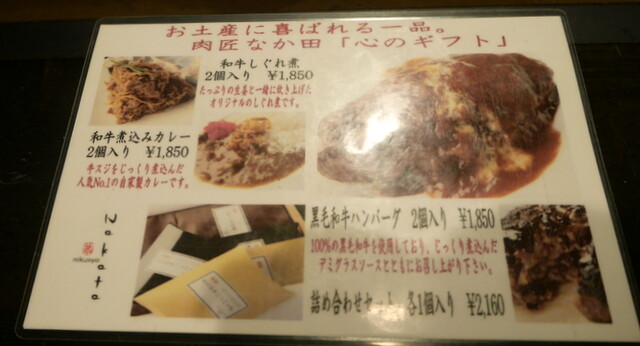 お土産に喜ばれる一品。
肉匠なか田「心のギフト」
和牛しぐれ煮
2個入り ¥1,850
たっぷりの生姜と一緒に炊き上げた
オリジナルのしぐれ煮です。
和牛煮込みカレー
2個入り ¥1,850
牛スジをじっくり煮込んだ
人気No.1の自家製カレーです。
黒毛和牛ハンバーグ 2個入り ¥1,850
100%の黒毛和牛を使用しており、じっくり煮込んだ
デミグラスソースとともにお召し上がり下さい。
詰め合わせセット 各1個入り ¥2,160
Nakata
nikusyo